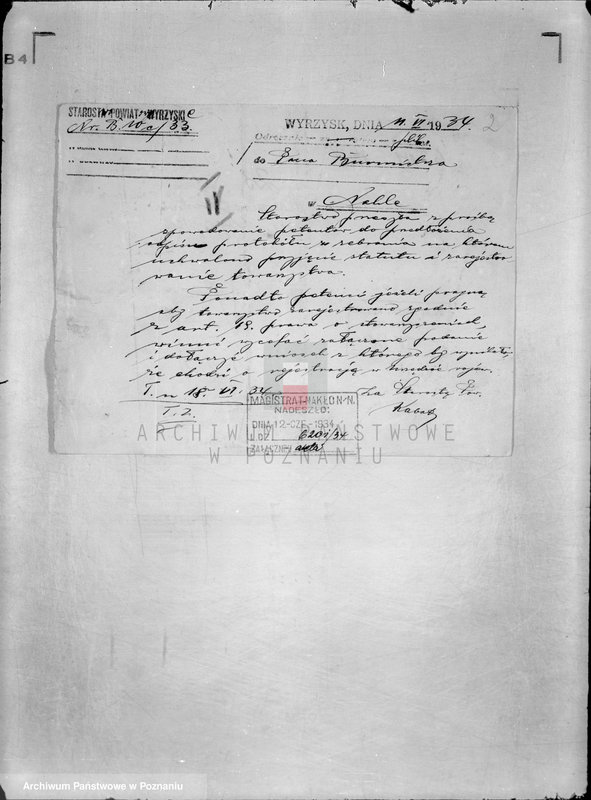 B4
STAROSTWO POWIATOWE WYRZYSKIE
Nr. B. 10 c/33.
WYRZYSK, DNIA 11 VI 1934. 2
do Pana Burmistrza
w Nakle
Starostwo przesyła z prośbą
spowodowanie petentów do przedłożenia
odpisu protokółu z zebrania na którem
uchwalono przyjęcie statutu i zarejestro
wanie towarzystwa.
Ponadto petenci jeżeli pragną
aby towarzystwo zarejestrowano zgodnie
z art. 19. prawa o stowarzyszeniach,
winni wycofać załączone podanie
i dołączyć wniosek z którego by wynikało,
że chodzi o rejestrację w Urzędzie wojew.
T. n 18. VI. 34
T. 2.
za Starostę Pow.
Kabat
MAGISTRAT-NAKŁO N/N.
NADESZŁO:
DNIA 12 CZE. 1934
L. DZ. 6201/34
ZAŁĄCZNIKI
ARCHIWUM PAŃSTWOWE
W POZNANIU
Archiwum Państwowe w Poznaniu